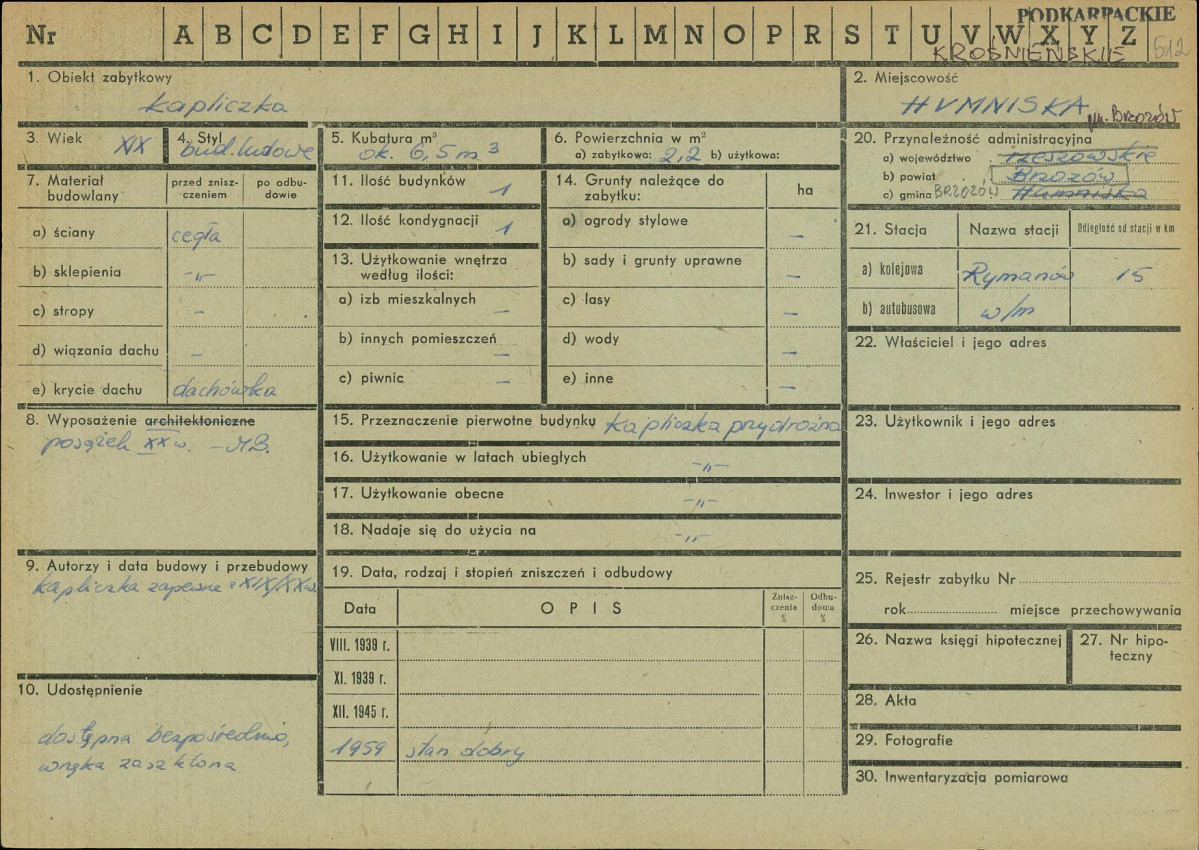 PODKARPACKIE
Nr A B C D E F G H I J K L M N O P R S T U V W X Y Z
KROŚNIEŃSKIE 512
1. Obiekt zabytkowy
kapliczka
2. Miejscowość
HUMNISKA
gm. BRZOZÓW
3. Wiek XIX
4. Styl bud. ludowe
5. Kubatura m³
ok. 6,5 m³
6. Powierzchnia w m²
a) zabytkowa: 2,2 b) użytkowa:
20. Przynależność administracyjna
a) województwo rzeszowskie
b) powiat Brzozów
c) gmina BRZOZÓW Humniska
7. Materiał budowlany
przed zniszczeniem
po odbudowie
a) ściany cegła
b) sklepienia -"-
c) stropy -
d) wiązania dachu -
e) krycie dachu dachówka
11. Ilość budynków 1
12. Ilość kondygnacji 1
13. Użytkowanie wnętrza
według ilości:
a) izb mieszkalnych -
b) innych pomieszczeń -
c) piwnic -
14. Grunty należące do
zabytku: ha
a) ogrody stylowe -
b) sady i grunty uprawne -
c) lasy -
d) wody -
e) inne -
21. Stacja Nazwa stacji Odległość od stacji w km
a) kolejowa Rymanów 15
b) autobusowa w/m
22. Właściciel i jego adres
8. Wyposażenie architektoniczne
posążek XX w. - M.B.
15. Przeznaczenie pierwotne budynku kapliczka przydrożna
16. Użytkowanie w latach ubiegłych -"-
17. Użytkowanie obecne -"-
18. Nadaje się do użycia na -"-
23. Użytkownik i jego adres
24. Inwestor i jego adres
9. Autorzy i data budowy i przebudowy
kapliczka zapewne z XIX/XX w.
19. Data, rodzaj i stopień zniszczeń i odbudowy
Data OPIS Zniszczenia % Odbudowa %
VIII. 1939 r.
XI. 1939 r.
XII. 1945 r.
1959 stan dobry
25. Rejestr zabytku Nr
rok miejsce przechowywania
26. Nazwa księgi hipotecznej
27. Nr hipoteczny
10. Udostępnienie
dostępna bezpośrednio,
wnęka zaszklona
28. Akta
29. Fotografie
30. Inwentaryzacja pomiarowa